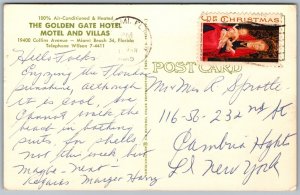 100% Air-Conditioned & Heated
THE GOLDEN GATE HOTEL
MOTEL AND VILLAS
19400 Collins Avenue - Miami Beach 54, Florida
Telephone WIlson 7-4611
CHRISTMAS
POST CARD
Hello Folks
Enjoying the Florida
sunshine although
it is cool, bre
Cannot walk the
beach in bathing
suits for shells!
Not this week but
maybe next
Regards Marger Harry
Mr + Mrs R Sprotte
116-50-232nd St
Cambria Hghts
LI New York